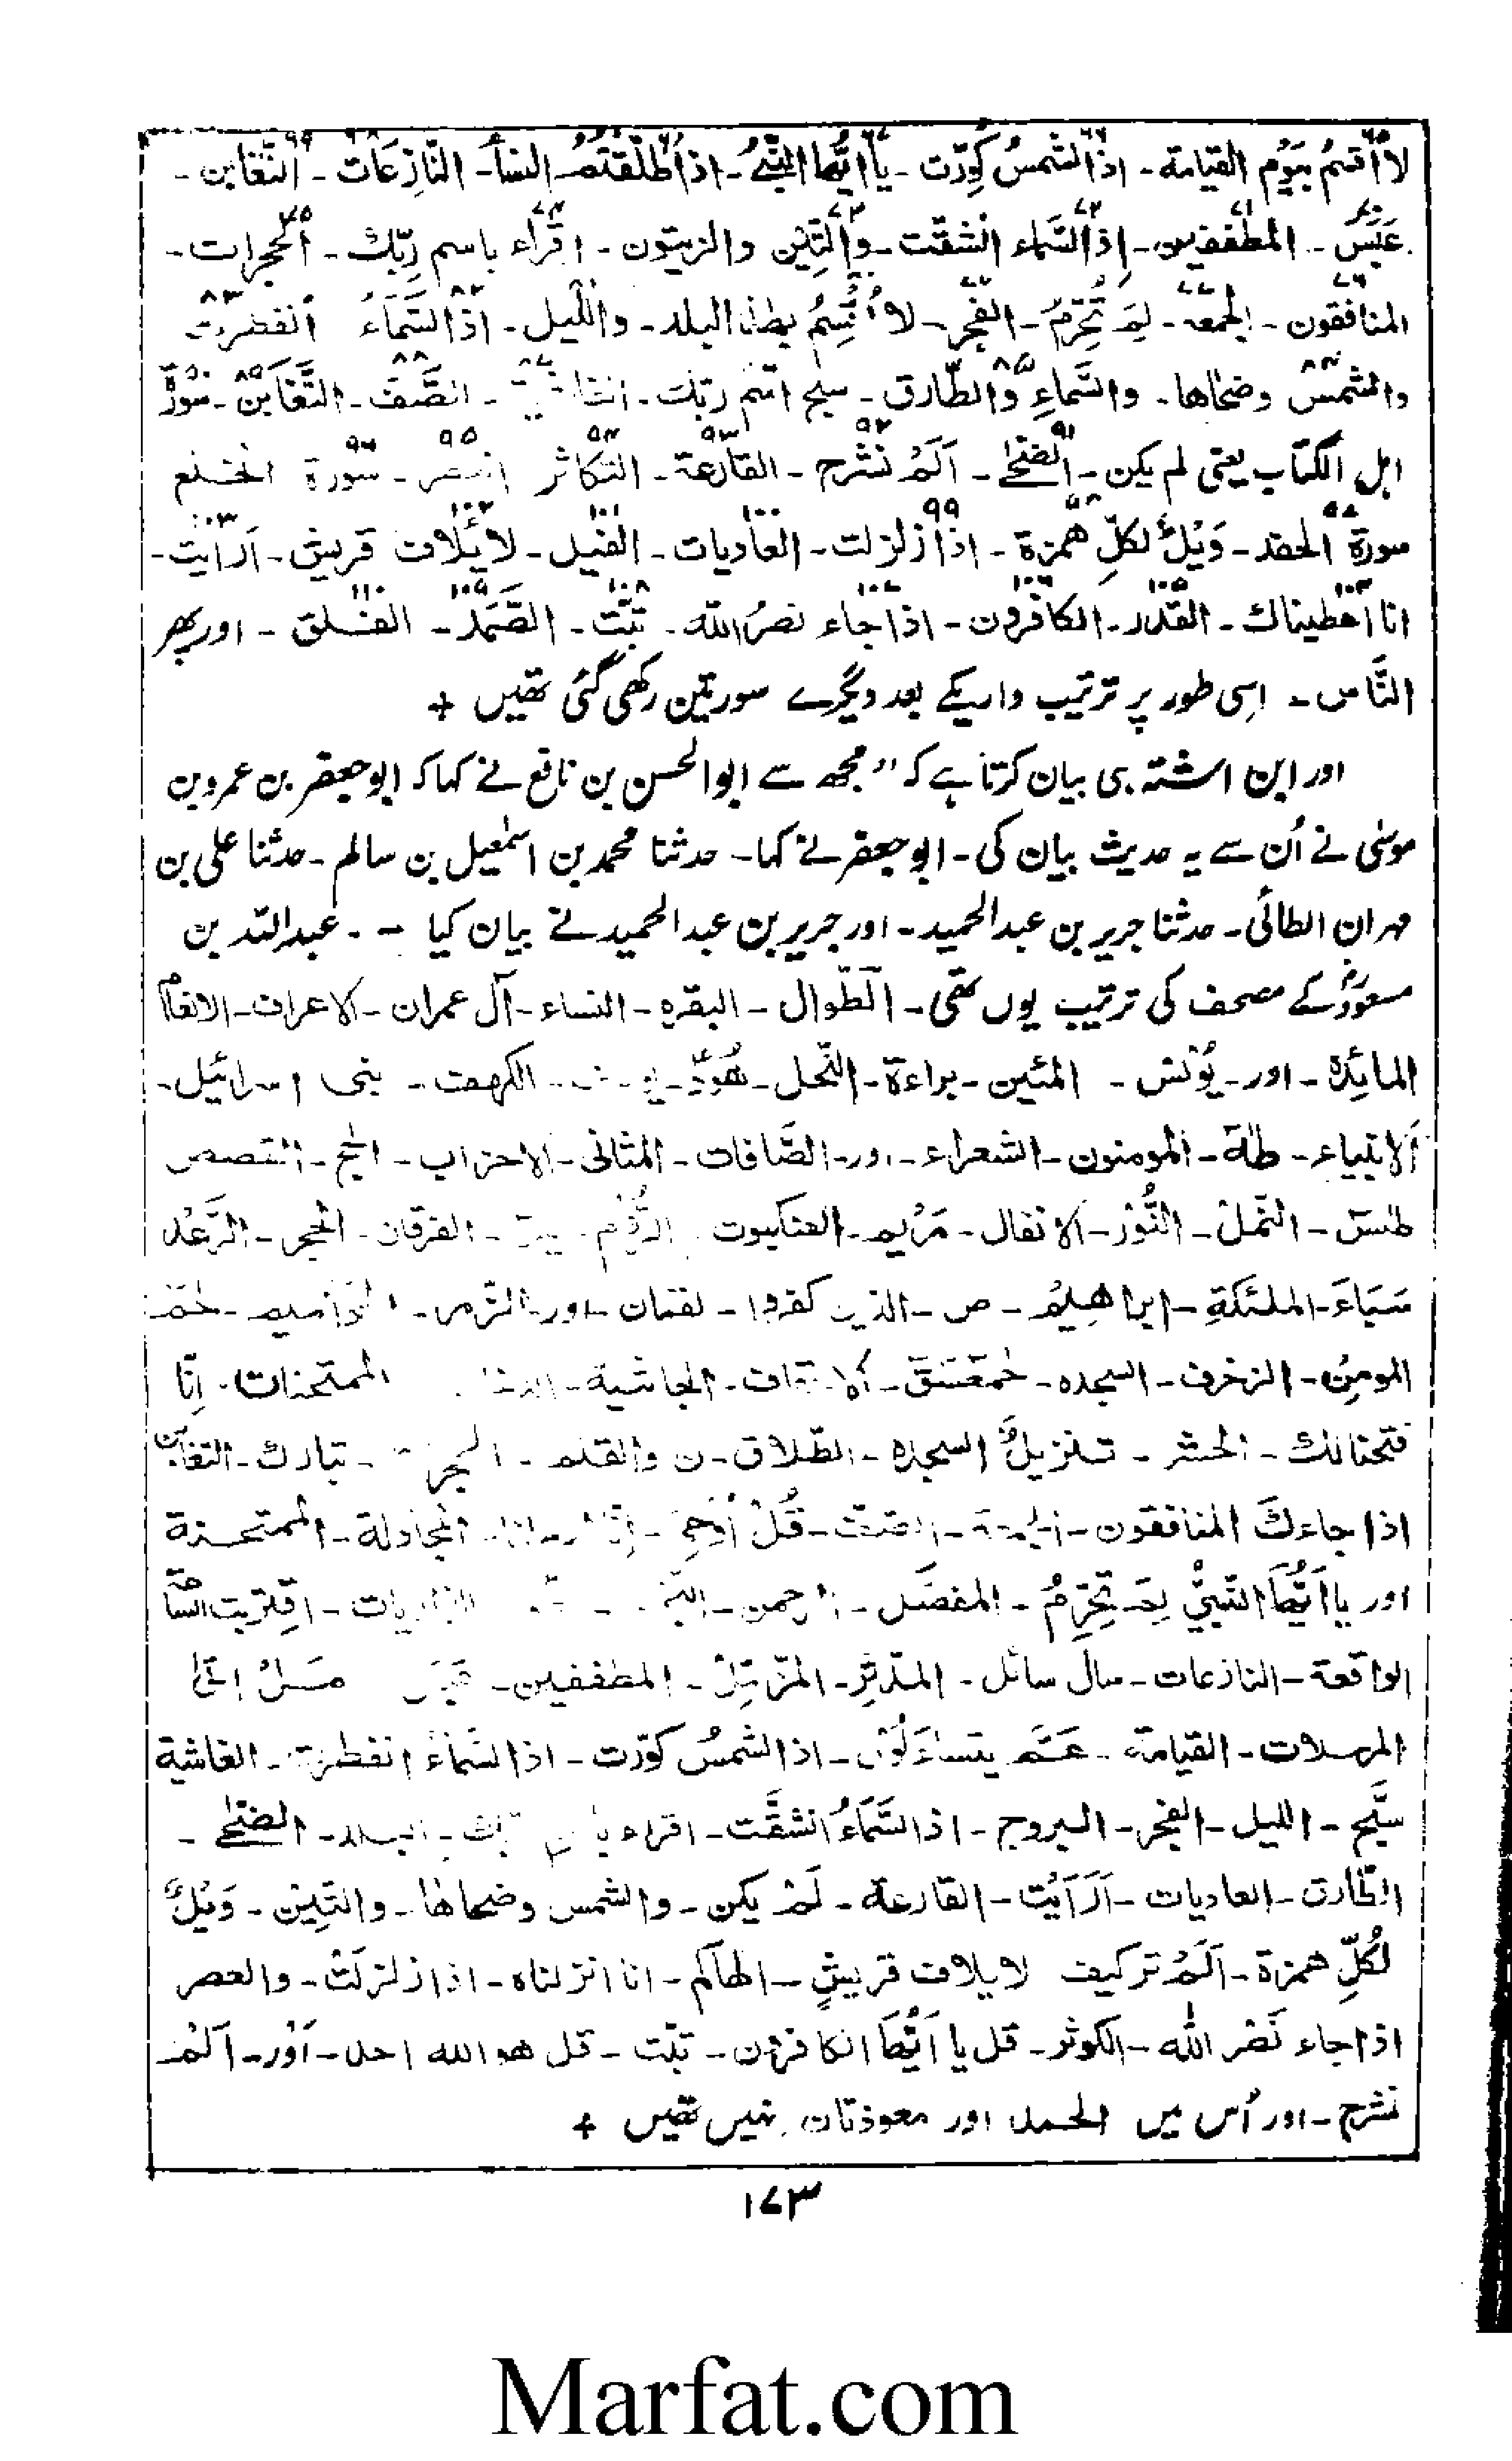 لَا اُقسِمُ بِیَوْمِ القیامة۔ اذا الشمسُ کُوِّرَت۔ یا اَیُّھا النَّبِیُّ۔ اذا طَلَّقْتُمُ النسآء۔ النَّازِعَات۔ التَّغَابن۔
عَبَسَ۔ المطففین۔ اِذَا السَّمَاء انْشَقَّت۔ وَالتِّیْنِ والزیتون۔ اقراء باسم رَبِّك۔ الحجرات۔
المنافقون۔ الجمعہ۔ لِمَ تُحَرِّمُ۔ الفجر۔ لا اُقْسِمُ بھٰذا البلد۔ واللیل۔ اذا السَّمَاءُ انْفَطَرَت
والشمسِ وضحاھا۔ والسَّماءِ والطَّارق۔ سبح اسم ربك۔ الغاشیۃ۔ الصَّف۔ التَّغَابن۔ سورۃ
اہل الکتاب یعنی لم یکن۔ الضحٰے۔ اَلَمْ نَشْرح۔ القارعة۔ التکاثر العصر۔ سورة الخلع
سورة الحفد۔ وَیلٌ لکلِّ ھمزة۔ اذا زلزلت۔ العادیات۔ الفیل۔ لایلاف قریش۔ اَرَاَیت۔
انا اعطیناك۔ القدر۔ الکافرون۔ اذا جاء نصرُ الله۔ تبّت۔ الصَّمَد۔ الفلق۔ اور پھر
النَّاس۔ اسی طور پر ترتیب وار یکے بعد دیگرے سورتیں رکھی گئی تھیں +
اور ابن اشتہ ہی بیان کرتا ہے کہ ”مجھ سے ابوالحسن بن نافع نے کہا کہ ابوجعفر بن عمرو بن
موسٰی نے اُن سے یہ حدیث بیان کی۔ ابوجعفر نے کہا۔ حدثنا محمد بن اسمٰعیل بن سالم۔ حدثنا علی بن
مہران الطائی۔ حدثنا جریر بن عبدالحمید۔ اور جریر بن عبدالحمید نے بیان کیا ۔ عبداللہ بن
مسعودؓ کے مصحف کی ترتیب یوں تھی۔ الطّوال۔ البقرہ۔ النساء۔ آل عمران۔ الاعراف۔ الانعام
المائِدہ۔ اور۔ یُونس۔ المئین۔ براءۃ۔ النّحل۔ ھُود۔ یوسف۔ الکھف۔ بنی اسرائیل۔
اَلانبیاء۔ طٰہٰ۔ المومنون۔ الشعراء۔ اور۔ الصَّافات۔ المثانی۔ الاحزاب۔ الحج۔ القصص
طٰسٓ۔ النّمل۔ النُّور۔ الانفال۔ مَرْیم۔ العنکبوت الرُّوم۔ یٰسٓ۔ الفرقان۔ الحجر۔ الرَّعْد
سَبَاء۔ الملٰئکةِ۔ ابراھِیْم۔ ص۔ الذین کفروا۔ لقمان۔ اور۔ الزّمر۔ الحوامیم۔ حٰمٓ
المومِن۔ الزخرف۔ السجدہ۔ حٰمٓعٓسٓقٓ۔ الاحقاف۔ الجاثیة۔ الدخان۔ الممتحنات۔ اِنَّا
فتحنا لك۔ الحشر۔ تنزیلُ السجدہ۔ الطّلاق۔ ن والقلم۔ الحجرات۔ تبارك۔ التغابن
اذا جاءكَ المنافقون۔ الجمعة۔ الصف۔ قُلْ اُوْحِیَ۔ اِنَّا ارسلنا۔ المجادلة۔ الممتحنة
اور یا اَیُّھَا النَّبِیُّ لِمَ تُحَرِّمُ۔ المفصَّل۔ الرحمن۔ النّجم۔ الذاریات۔ اقتربت الساعة
الواقعة۔ النازعات۔ سال سائل۔ المدّثر۔ المزّمِّل۔ المطففین۔ عَبَسَ ھَلْ اَتٰی
المرسلات۔ القیامة۔ عَمَّ یتساءَلُون۔ اذا الشمسُ کورت۔ اذا السَّمَاءُ انفطرت۔ الغاشیة
سَبِّح۔ اللیل۔ الفجر۔ البروج۔ اذا السَّمَاءُ انْشَقَّت۔ اقراء باسم ربك۔ البلد۔ الضحٰے۔
الطّارق۔ العادیات۔ اَرَاَیْت۔ القارعة۔ لَمْ یکن۔ والشمس وضحاھا۔ والتِّین۔ وَیْلٌ
لِکُلِّ ھمزة۔ اَلَمْ تر کیف لایلاف قریشٍ۔ الھاکم۔ انا انزلناہ۔ اذا زلزلَتْ۔ والعصر
اذا جاء نَصْرُ اللہ۔ الکوثر۔ قل یا اَیُّھَا الکافرون۔ تبّت۔ قل ھو الله احد۔ اَوْر۔ اَلَمْ
نشرح۔ اور اُس میں الحمد اور معوذتان نہیں تھیں +
۱۷۳
Marfat.com